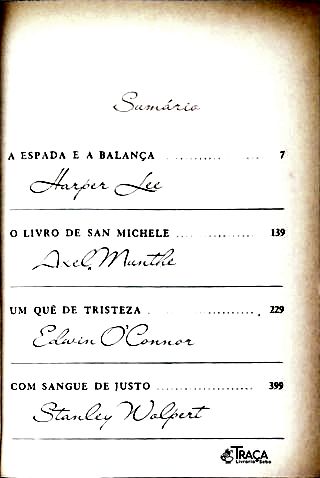 Sumário
A ESPADA E A BALANÇA ............ 7
Harper Lee
O LIVRO DE SAN MICHELE ................ 139
Axel Munthe
UM QUÊ DE TRISTEZA ...................... 229
Edwin O'Connor
COM SANGUE DE JUSTO .................... 399
Stanley Wolpert
TRAÇA
Livraria e Sebo